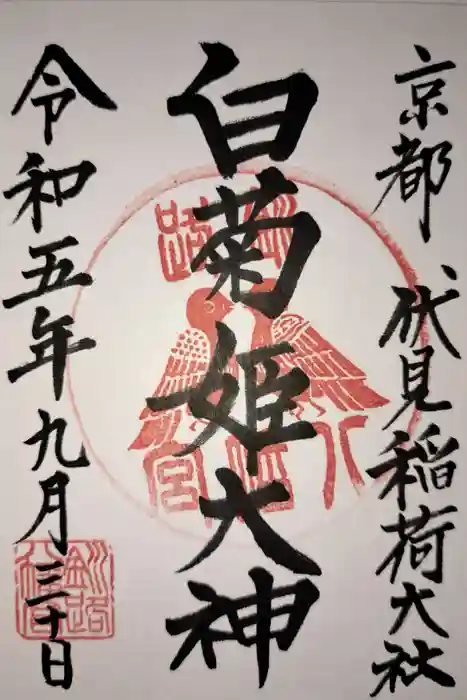 京都 伏見稲荷大社
白菊姫大神
令和五年九月三十日
釧路
八幡宮